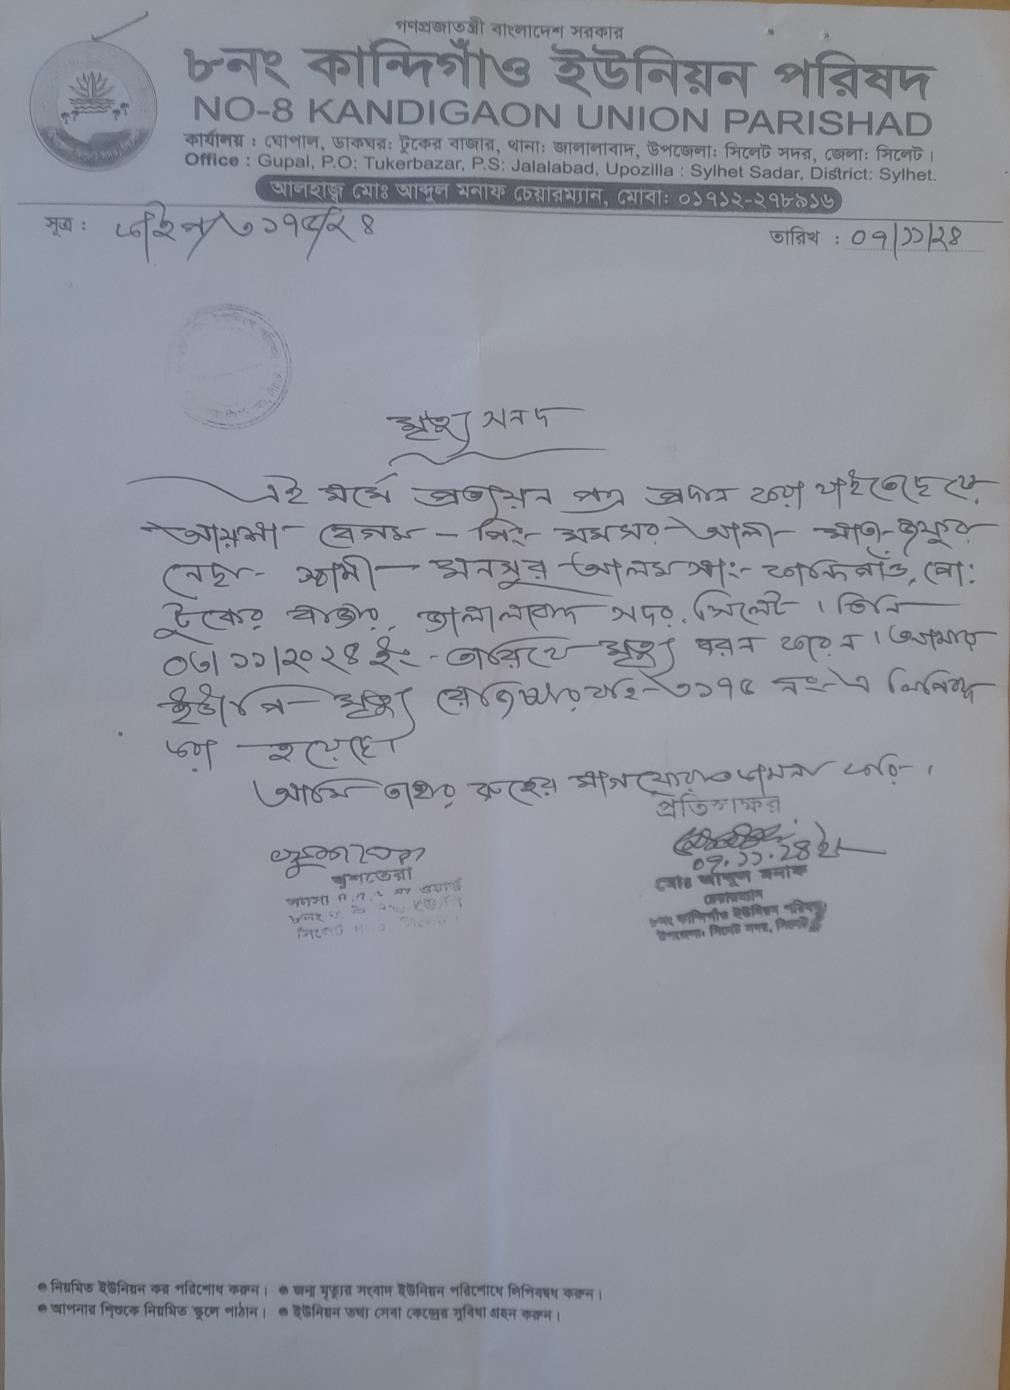 গণপ্রজাতন্ত্রী বাংলাদেশ সরকার
৮নং কান্দিগাঁও ইউনিয়ন পরিষদ
NO-8 KANDIGAON UNION PARISHAD
কার্যালয় : ঘোপাল, ডাকঘর: টুকের বাজার, থানা: জালালাবাদ, উপজেলা: সিলেট সদর, জেলা: সিলেট।
Office : Gupal, P.O: Tukerbazar, P.S: Jalalabad, Upozilla : Sylhet Sadar, District: Sylhet.
আলহাজ্ব মোঃ আব্দুল মনাফ চেয়ারম্যান, মোবা: ০১৭১২-২৭৮৯১৬
সূত্র : /৩১৭৫/২৪
তারিখ : ০৭/১১/২৪
মৃত্যু সনদ
এই মর্মে প্রত্যয়ন পত্র প্রদান করা যাইতেছে যে
আয়শা বেগম - পিং- আলী- মাতা-
নেছা- স্বামী- মনসুর আলম সাং- কান্দিগাঁও, পো:
টুকের বাজার, জালালাবাদ সদর, সিলেট। তিনি
০৩/১১/২০২৪ ইং- তারিখে মৃত্যু বরন করেন। আমার
ইউপি মৃত্যু রেজিষ্টার বহি- ৩১৭৫ নং- এ লিপিবদ্ধ
করা হয়েছে।
আমি তাহার রুহের মাগফেরাত কামনা করি।
প্রতিস্বাক্ষর
০৭.১১.২৪ ইং
মোঃ আব্দুল মনাফ
চেয়ারম্যান
৮নং কান্দিগাঁও ইউনিয়ন পরিষদ
উপজেলা: সিলেট সদর, সিলেট
● নিয়মিত ইউনিয়ন কর পরিশোধ করুন। ● জন্ম মৃত্যুর সংবাদ ইউনিয়ন পরিশোধে লিপিবদ্ধ করুন।
● আপনার শিশুকে নিয়মিত স্কুলে পাঠান। ● ইউনিয়ন তথ্য সেবা কেন্দ্রের সুবিধা গ্রহন করুন।